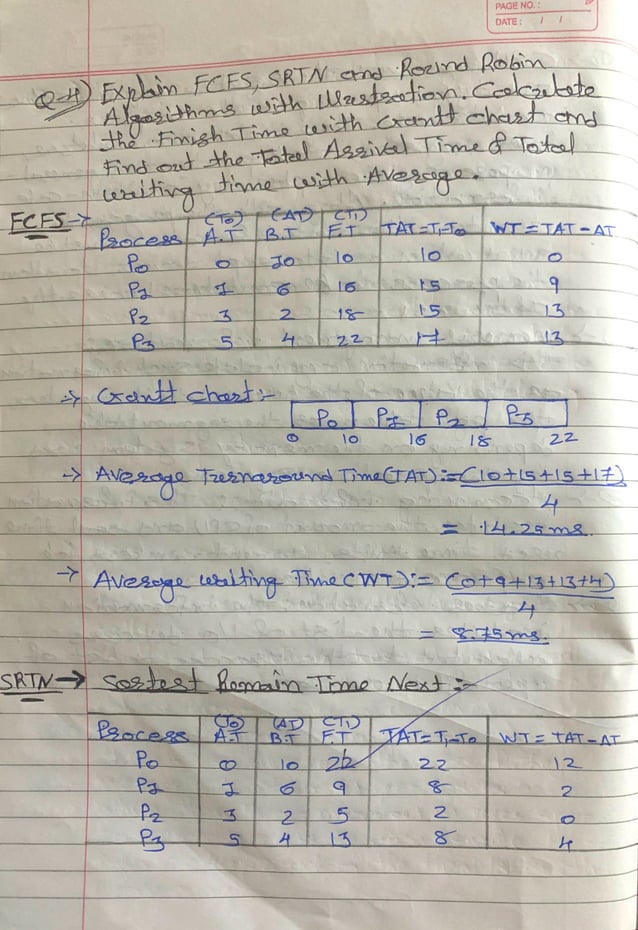 PAGE NO.:
DATE: / /
Q-4) Explain FCFS, SRTN and Round Robin
Algorithms with Illustration. Calculate
the Finish Time with Grantt chart and
Find out the Total Arrival Time & Total
writing time with Average.
FCFS →
(T0) (AT) (T1)
Process A.T B.T F.T TAT=T1-T0 WT = TAT - AT
P0 0 10 10 10 0
P1 1 6 16 15 9
P2 3 2 18 15 13
P3 5 4 22 17 13
→ Grantt chart :-
P0 P1 P2 P3
0 10 16 18 22
→ Average Turnaround Time (TAT) := (10+15+15+17)
4
= 14.25 ms.
→ Average waiting Time (WT) := (0+9+13+13+4)
4
= 8.75 ms.
SRTN → Sortest Remain Time Next :-
(T0) (AT) (T1)
Process A.T B.T F.T TAT=T1-T0 WT = TAT - AT
P0 0 10 22 22 12
P1 1 6 9 8 2
P2 3 2 5 2 0
P3 5 4 13 8 4